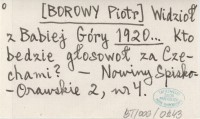 [BOROWY Piotr] Widzioł
z Babiej Góry 1920... Kto
bedzie głosowoł za Cze-
chami? - Nowiny Spisko-
-Orawskie 2, nr 4.
BT/000/0643